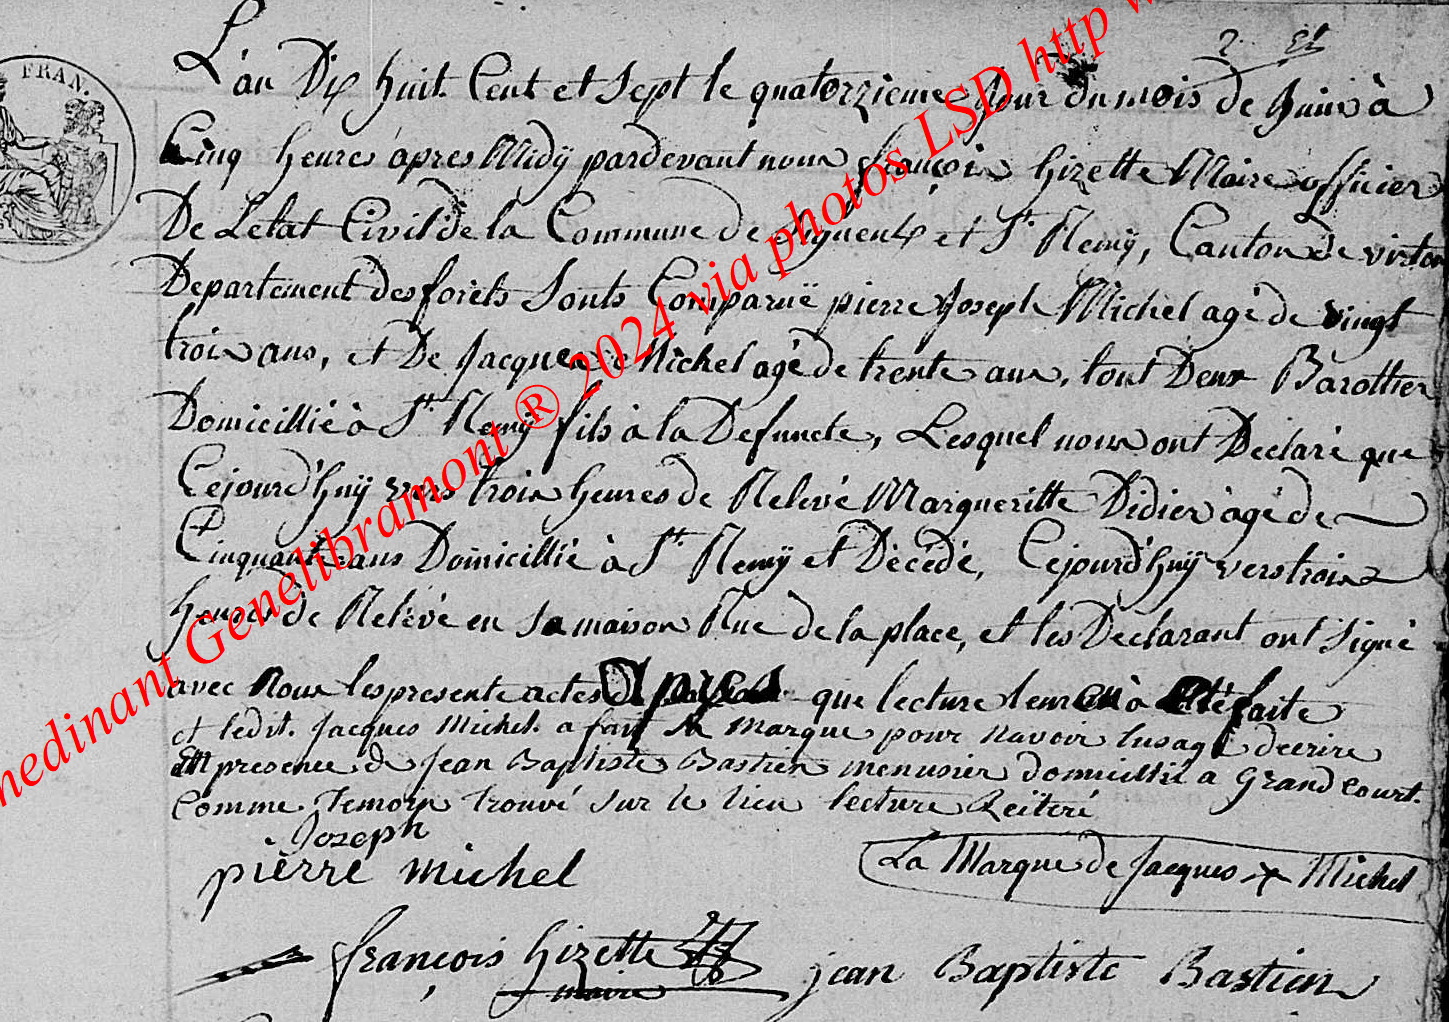 FRAN.
2 et
L'an Dix huit Cent et Sept le quatorzieme jour Du mois de Juin à
Cinq heures après Midÿ pardevant nous françois Gizette Maire officier
De Letat Civil de la Commune de Signeulx et St. Remÿ, Canton de virton
Departement des forêts Sonts Comparuë pierre Joseph Michel agé de vingt
trois ans, et De Jacques Michel agé de trente ans, tout Deux Barottier
Domicillié à St. Remÿ fils à la Defuncte, Lesquel nous ont Declaré que
Cejourd'huÿ vers trois heures de Relevé Margueritte Didier àgé de
Cinquante ans Domicillié à St. Remÿ et Décédé, Cejourd'huÿ vers trois
heures de Relevé en Sa maison Rue de la place, et les Declarant ont Signé
avec Nous les presente actes apres que lecture leur en à Eté faite
et ledit. Jacques Michel. a fait sa marque pour navoir lusage decrire
En presence de Jean Baptiste Bastien menusier domicillié a Grandcourt.
Comme Temoin trouvé sur le lieu lecture Reiteré
Jozeph
pierre michel
La Marque de Jacques x Michel
françois Gizette
maire
jean Baptiste Bastien
medinant Genelibramont ® 2024 via photos LSD http